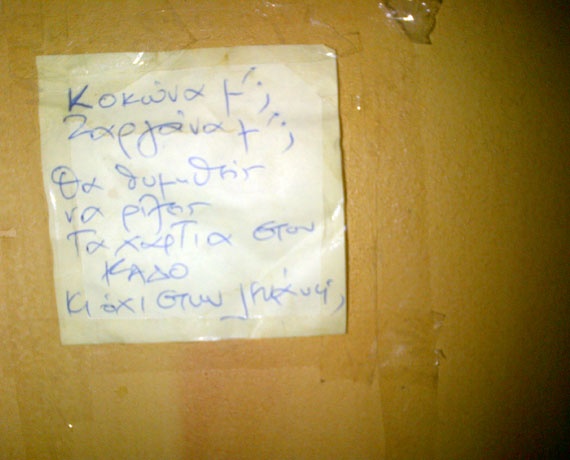 Κοκώνα μ';
Ζαργάνα μ';
Θα θυμηθείς
να ρίξεις
Τα χαρτιά στον
ΚΑΔΟ
Κι όχι στην λεκάνη;